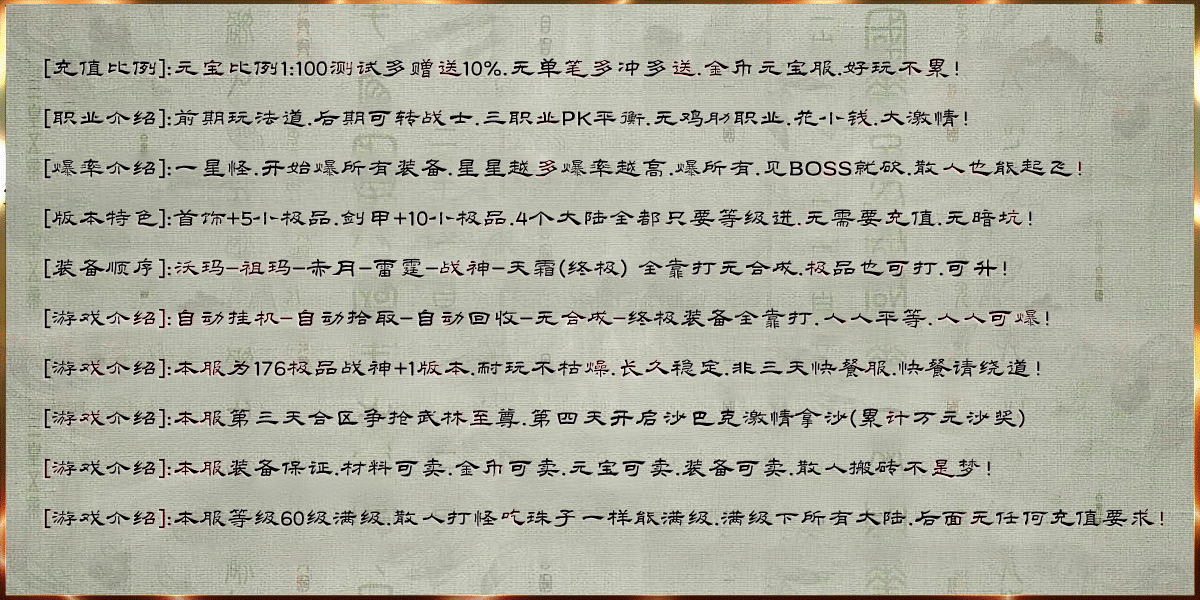 [充值比例]:元宝比例1:100测试多赠送10%.无单笔多冲多送.金币元宝服.好玩不累!
[职业介绍]:前期玩法道.后期可转战士.三职业PK平衡.无鸡肋职业.花小钱.大激情!
[爆率介绍]:一星怪.开始爆所有装备.星星越多爆率越高.爆所有.见BOSS就砍.散人也能起飞!
[版本特色]:首饰+5小极品.剑甲+10小极品.4个大陆全都只要等级进.无需要充值.无暗坑!
[装备顺序]:沃玛-祖玛-赤月-雷霆-战神-天霜(终极) 全靠打无合成.极品也可打.可升!
[游戏介绍]:自动挂机-自动拾取-自动回收-无合成-终极装备全靠打.人人平等.人人可爆!
[游戏介绍]:本服为176极品战神+1版本.耐玩不枯燥.长久稳定.非三天快餐服.快餐请绕道!
[游戏介绍]:本服第三天合区争抢武林至尊.第四天开启沙巴克激情拿沙(累计万元沙奖)
[游戏介绍]:本服装备保证.材料可卖.金币可卖.元宝可卖.装备可卖.散人搬砖不是梦!
[游戏介绍]:本服等级60级满级.散人打怪吃珠子一样能满级.满级下所有大陆.后面无任何充值要求!